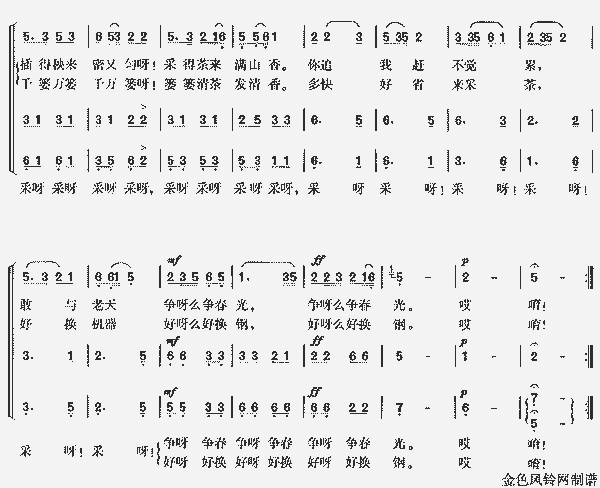 5. 3 5 3 6 53 2 2 5. 3 2 16 5 561 2 2 3 3 35 6 1 2 35 2
插得秧来 密又匀呀！采得茶来 满山香。你追 我赶 不觉 累，
千篓万篓 千万篓呀！篓篓清茶 发清香。多快 好省 来采 茶，
3 1 3 1 3 1 2 2 3 1 3 1 2 5 3 3 6. 5 6. 5 6. 6 2. 2
6 1 6 1 3 5 6 2 5 3 5 3 5 3 1 1 6. 1 6. 5 3. 6 1. 6
采呀 采呀 采呀 采呀，采呀 采呀 采呀 采呀，采 呀 采 呀！采 呀！采 呀！
mf ff p
5. 3 2 1 6 61 5 2 3 5 6 5 1. 35 2 2 3 2 16 5 - 2 - 5 -
敢 与 老天 争呀么争春 光， 争呀么争春 光。 哎 唷！
好 换 机器 好呀么好换 钢， 好呀么好换 钢。 哎 唷！
mf ff p
3. 1 2. 5 6 6 3 3 3 3 2 1 2 2 6 6 5 - 1 - 2 -
mf ff p
3. 5 2. 5 5 5 3 3 6 6 6 6 6 6 2 2 7 - 6 - 7 -
5 -
采 呀！采 呀！争呀 争春 争呀 争春 争呀 争春 光。 哎 唷！
好呀 好换 好呀 好换 好呀 好换 钢。 哎 唷！
金色风铃网制谱